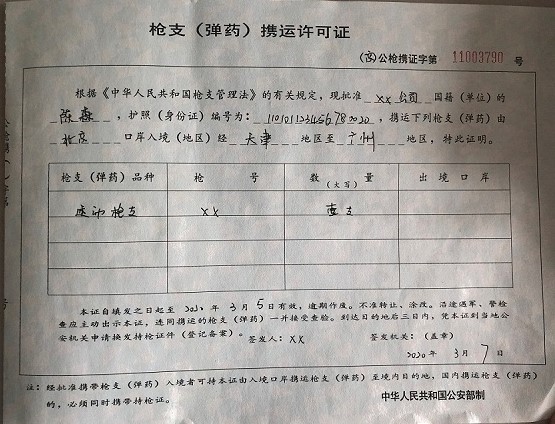 枪支（弹药）携运许可证
公枪携证字第 11003790 号
根据《中华人民共和国枪支管理法》的有关规定，现批准 XX公司 国籍（单位）的
，护照（身份证）编号为： ，携运下列枪支（弹药）由
北京 口岸入境（地区）经 天津 地区至 广州 地区，特此证明。
枪支（弹药）品种 枪号 数（大写）量 出境口岸
运动枪支 XX 壹支
本证自填发之日起至 2020 年 3 月 5 日有效，逾期作废。不准转让、涂改。沿途遇军、警检
查应主动出示本证，连同携运的枪支（弹药）一并接受查验。到达目的地后三日内，凭本证到当地公
安机关申请换发持枪证件（登记备案）。 签发人：XX 签发机关：（盖章）
2020 年 3 月 7 日
注：经批准携带枪支（弹药）入境者可持本证由入境口岸携运枪支（弹药）至境内目的地，国内携运枪支（弹药）
的，必须同时携带持枪证。
中华人民共和国公安部制